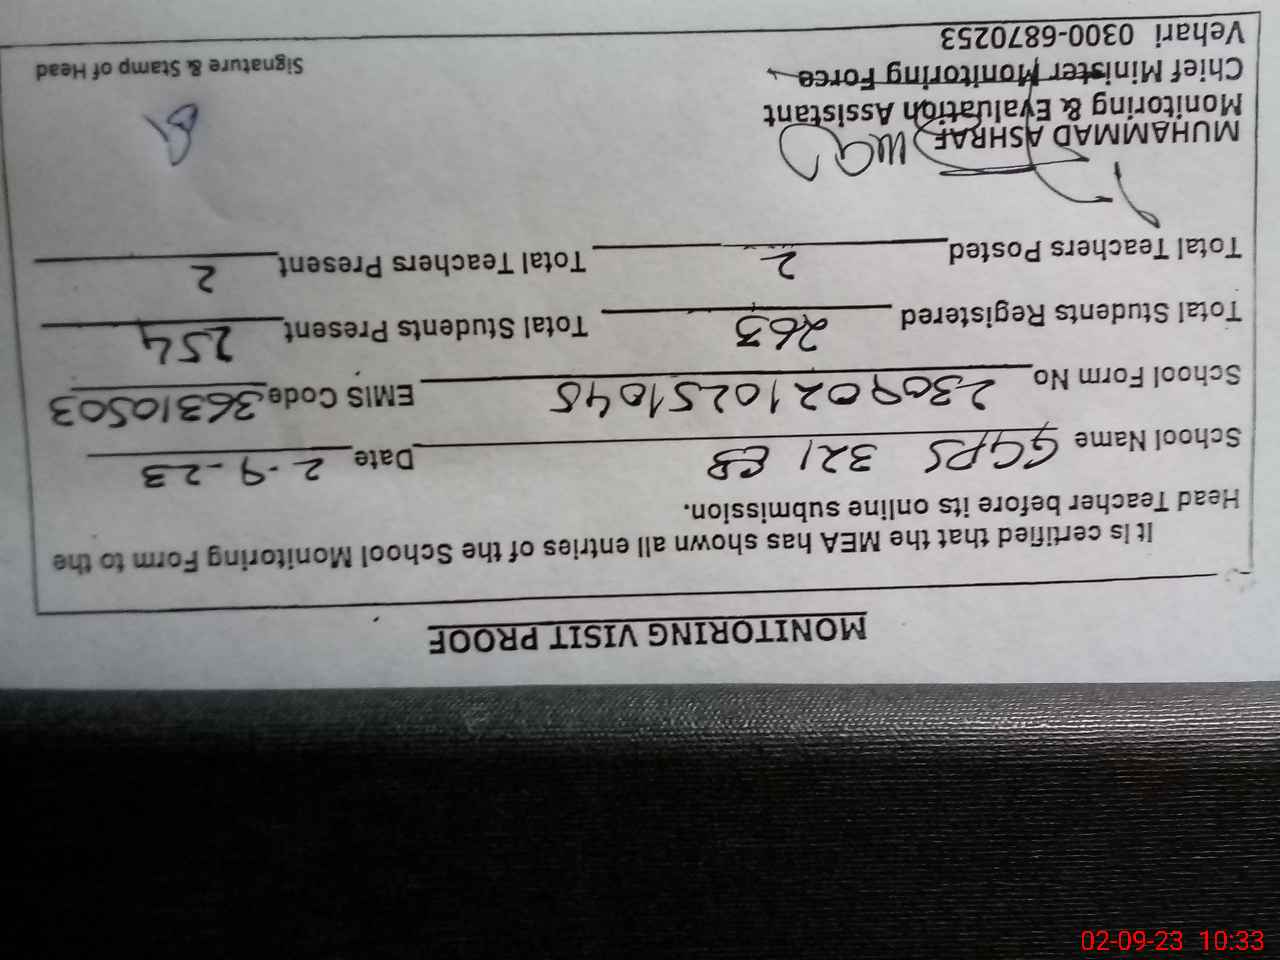 MONITORING VISIT PROOF
It is certified that the MEA has shown all entries of the School Monitoring Form to the
Head Teacher before its online submission.
School Name GGPS 321 EB Date 2-9-23
School Form No 23090210251045 EMIS Code 36310503
Total Students Registered 263 Total Students Present 254
Total Teachers Posted 2 Total Teachers Present 2
MUHAMMAD ASHRAF
Monitoring & Evaluation Assistant
Chief Minister Monitoring Force
Vehari 0300-6870253
Signature & Stamp of Head
02-09-23 10:33